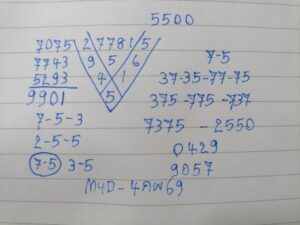 5500
7075 277815
7743 9 5 6
5293 4 1
9901 5
7-5-3
2-5-5
7-5 3-5
7-5
37-35-77-75
375-775-737
7375 - 2550
0429
9057
M4D-4คพ69